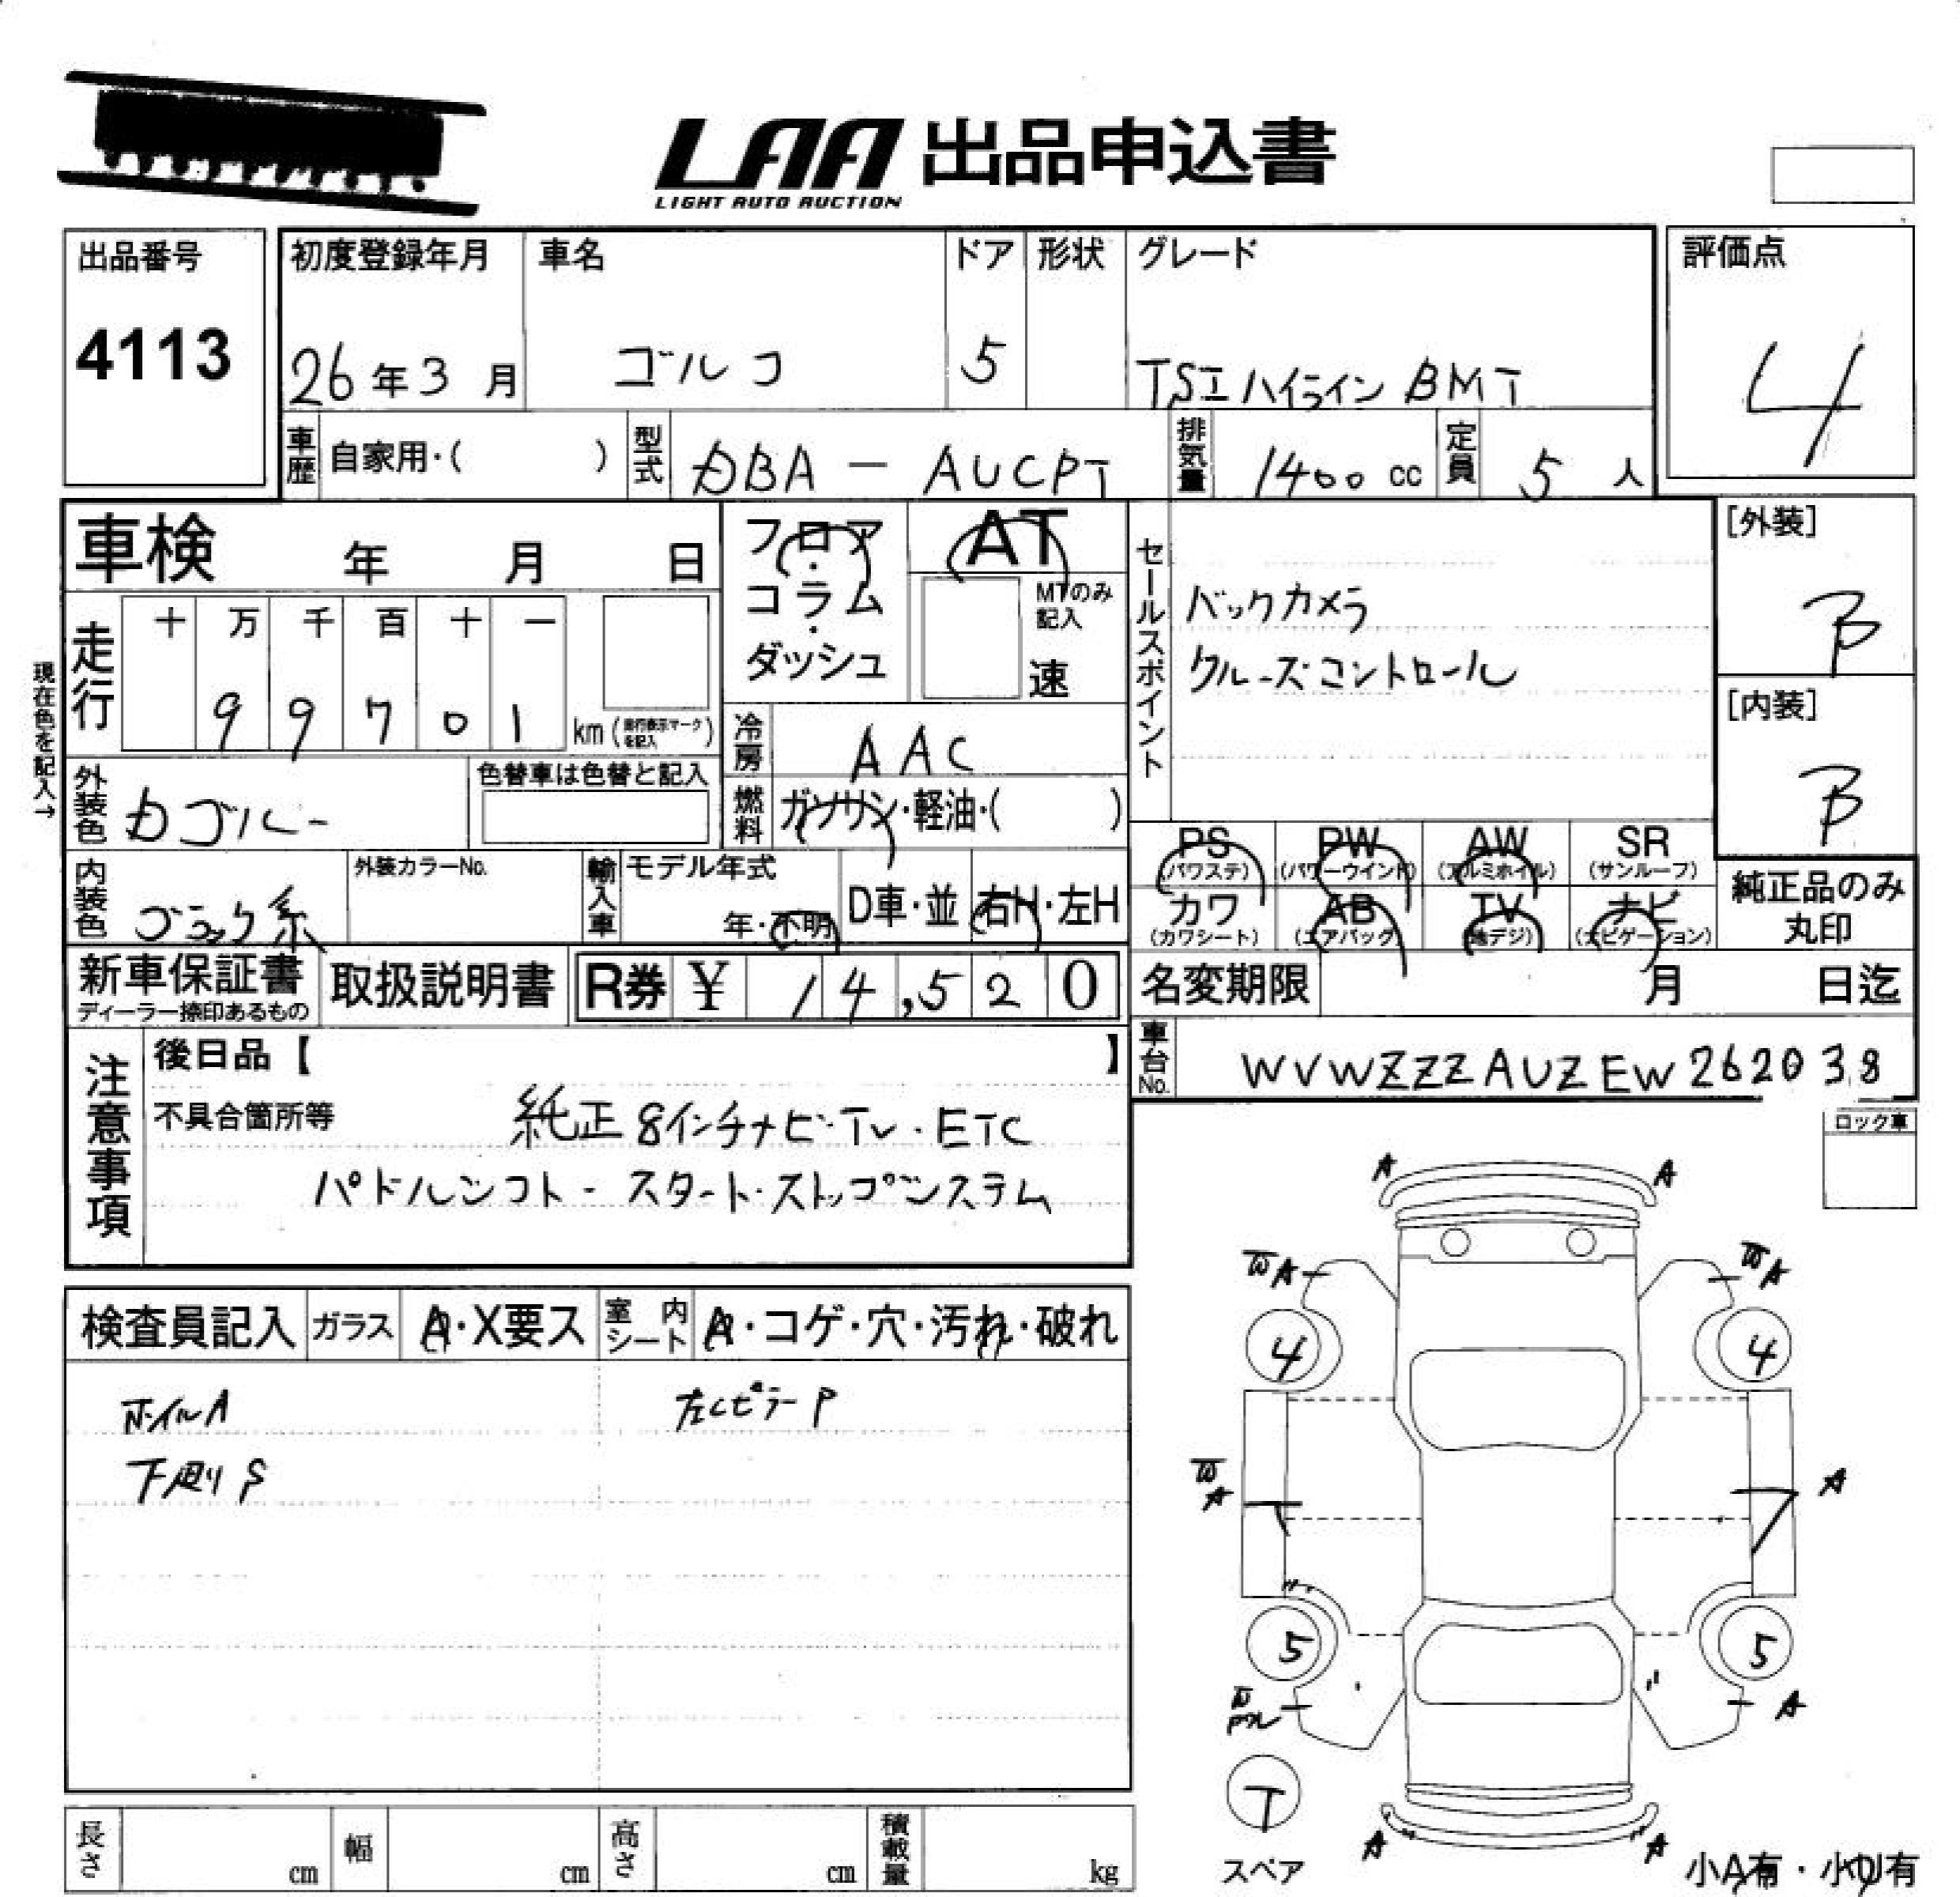 LAA 出品申込書
LIGHT AUTO AUCTION
出品番号 初度登録年月 車名 ドア 形状 グレード 評価点
4113 26年3月 ゴルフ 5 TSIハイラインBMT 4
車歴 自家用・( ) 型式 DBA-AUCPT 排気量 1400cc 定員 5人
車検 年 月 日
フロア・コラム・ダッシュ
AT
MTのみ記入
速
セールスポイント
バックカメラ
クルーズコントロール
[外装]
B
[内装]
B
現在色を記入→
走行 十 万 千 百 十 一
99701 km(走行表示マークを記入)
冷房 AAC
外装色 色替車は色替と記入
燃料 ガソリン・軽油・( )
内装色 ブラック系 外装カラーNo. 輸入車 モデル年式 年・不明 D車・並 右H・左H
PS (パワステ) PW (パワーウインド) AW (アルミホイル) SR (サンルーフ)
カワ (カワシート) AB (エアバッグ) TV (地デジ) ナビ (ナビゲーション)
純正品のみ丸印
新車保証書 ディーラー捺印あるもの 取扱説明書 R券 ¥ 14,520
名変期限 月 日迄
車台No. WVWZZZAUZEW262038
注意事項
後日品【 】
不具合箇所等 純正8インチナビ・TV・ETC
パドルシフト・スタート・ストップシステム
ロック車
検査員記入 ガラス A・X要ス 室内シート A・コゲ・穴・汚れ・破れ
ホイルA 左CピラーP
下廻りS
A A
WA WA
4 4
W
A A
5 5
W A
T
スペア
A A
小A有・小U有
長さ cm 幅 cm 高さ cm 積載量 kg